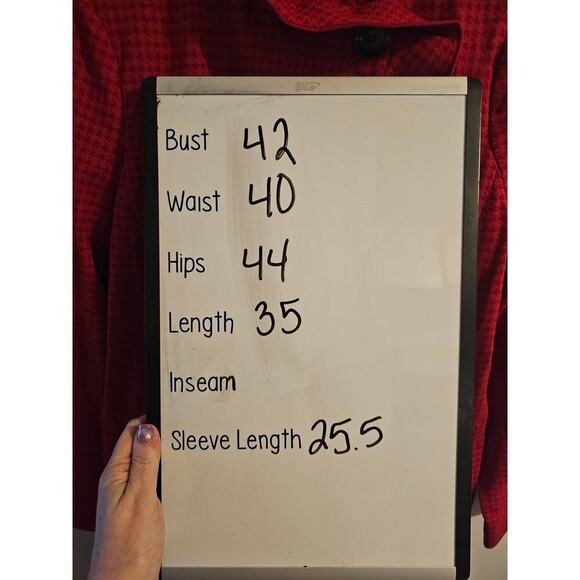 Bust 42
Waist 40
Hips 44
Length 35
Inseam
Sleeve Length 25.5